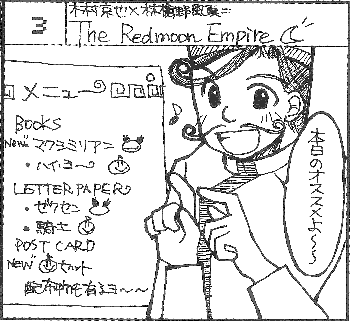 3
The Redmoon Empire
メニュー
BOOKS
NEW マクシミリアン
・ハイ・ヨー
LETTER PAPER
・ゼクセン
・騎士
POST CARD
NEW セット
配布物も有るヨ〜〜
本日のオススメよ〜〜